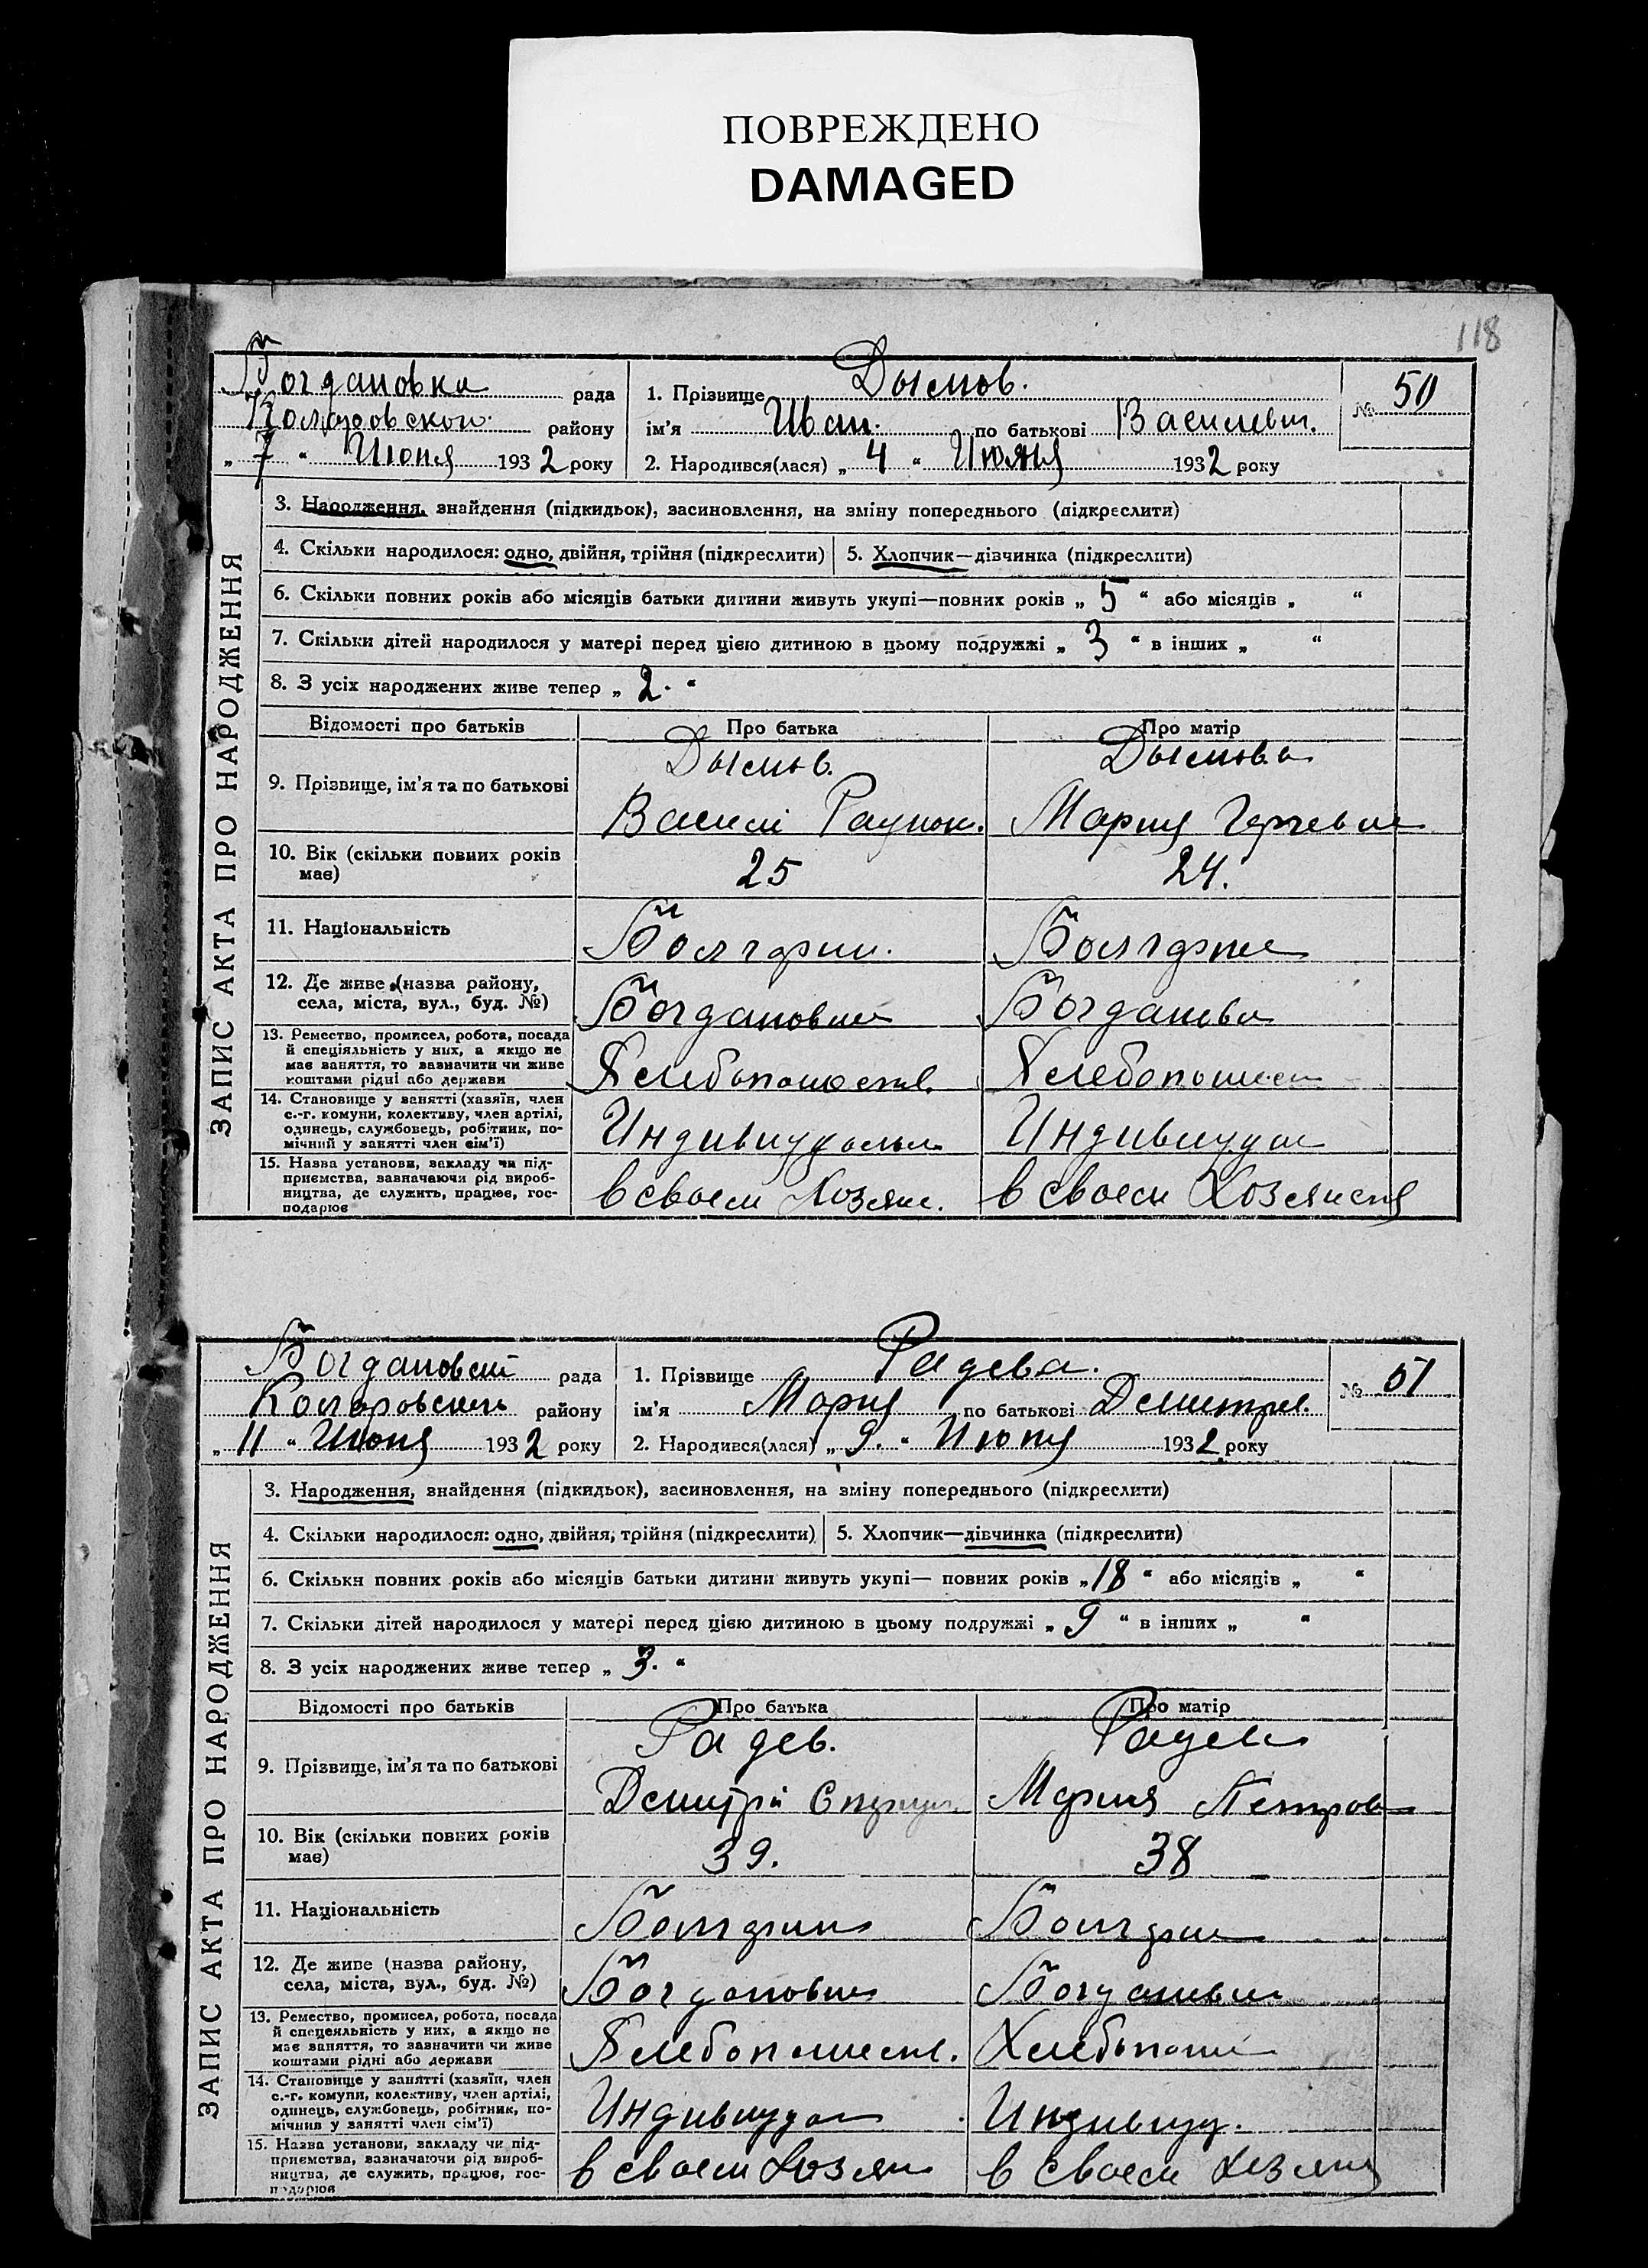 ПОВРЕЖДЕНО
DAMAGED
118
Богдановка рада
Коларовской району
„ 7 “ Июня 1932 року
1. Прізвище Дымов.
ім’я Иван. по батькові Василевич.
2. Народився(лася) „ 4 “ Июня 1932 року
№ 50
ЗАПИС АКТА ПРО НАРОДЖЕННЯ
3. Народження, знайдення (підкидьок), засиновлення, на зміну попереднього (підкреслити)
4. Скільки народилося: одно, двійня, трійня (підкреслити) 5. Хлопчик—дівчинка (підкреслити)
6. Скільки повних років або місяців батьки дитини живуть укупі—повних років „ 5 “ або місяців „ “
7. Скільки дітей народилося у матері перед цією дитиною в цьому подружжі „ 3 “ в інших „ “
8. З усіх народжених живе тепер „ 2. “
Відомості про батьків Про батька Про матір
9. Прізвище, ім’я та по батькові
Дымов. Дымова
Василі Мария
10. Вік (скільки повних років має)
25 24.
11. Національність
Болгарин. Болгарка
12. Де живе (назва району, села, міста, вул., буд. №)
Богдановка Богдановка
13. Ремество, промисел, робота, посада
й спеціяльність у них, а якщо не
має заняття, то зазначити чи живе
коштами рідні або держави
Хлебопашест. Хлебопашест
14. Становище у занятті (хазяїн, член
с.-г. комуни, колективу, член артілі,
одинець, службовець, робітник, по-
мічний у занятті член сім’ї)
Индивидуальн Индивидуал
15. Назва установи, закладу чи під-
приємства, зазначаючи рід вироб-
ництва, де служить, працює, гос-
подарює
в своем Хозяис. в своем Хозяиств
Богдановской рада
Коларовского району
„ 11 “ Июня 1932 року
1. Прізвище Радева.
ім’я Мария по батькові Демитрев.
2. Народився(лася) „ 9. “ Июня 1932 року
№ 51
ЗАПИС АКТА ПРО НАРОДЖЕННЯ
3. Народження, знайдення (підкидьок), засиновлення, на зміну попереднього (підкреслити)
4. Скільки народилося: одно, двійня, трійня (підкреслити) 5. Хлопчик—дівчинка (підкреслити)
6. Скільки повних років або місяців батьки дитини живуть укупі— повних років „ 18 “ або місяців „ “
7. Скільки дітей народилося у матері перед цією дитиною в цьому подружжі „ 9 “ в інших „ “
8. З усіх народжених живе тепер „ 3. “
Відомості про батьків Про батька Про матір
9. Прізвище, ім’я та по батькові
Радев. Радева
Демитрій Мария Петров
10. Вік (скільки повних років має)
39. 38
11. Національність
Болгарин Болгарка
12. Де живе (назва району, села, міста, вул., буд. №)
Богдановка Богдановка
13. Ремество, промисел, робота, посада
й спецеяльність у них, а якщо не
має заняття, то зазначити чи живе
коштами рідні або держави
Хлебопашест. Хлебопаш
14. Становище у занятті (хазяїн, член
с.-г. комуни, колективу, член артілі,
одинець, службовець, робітник, по-
мічний у занятті член сім’ї)
Индивидуал Индивид.
15. Назва установи, закладу чи під-
приємства, зазначаючи рід вироб-
ництва, де служить, працює, гос-
подарює
в своем Хозяис в своем Хозяис